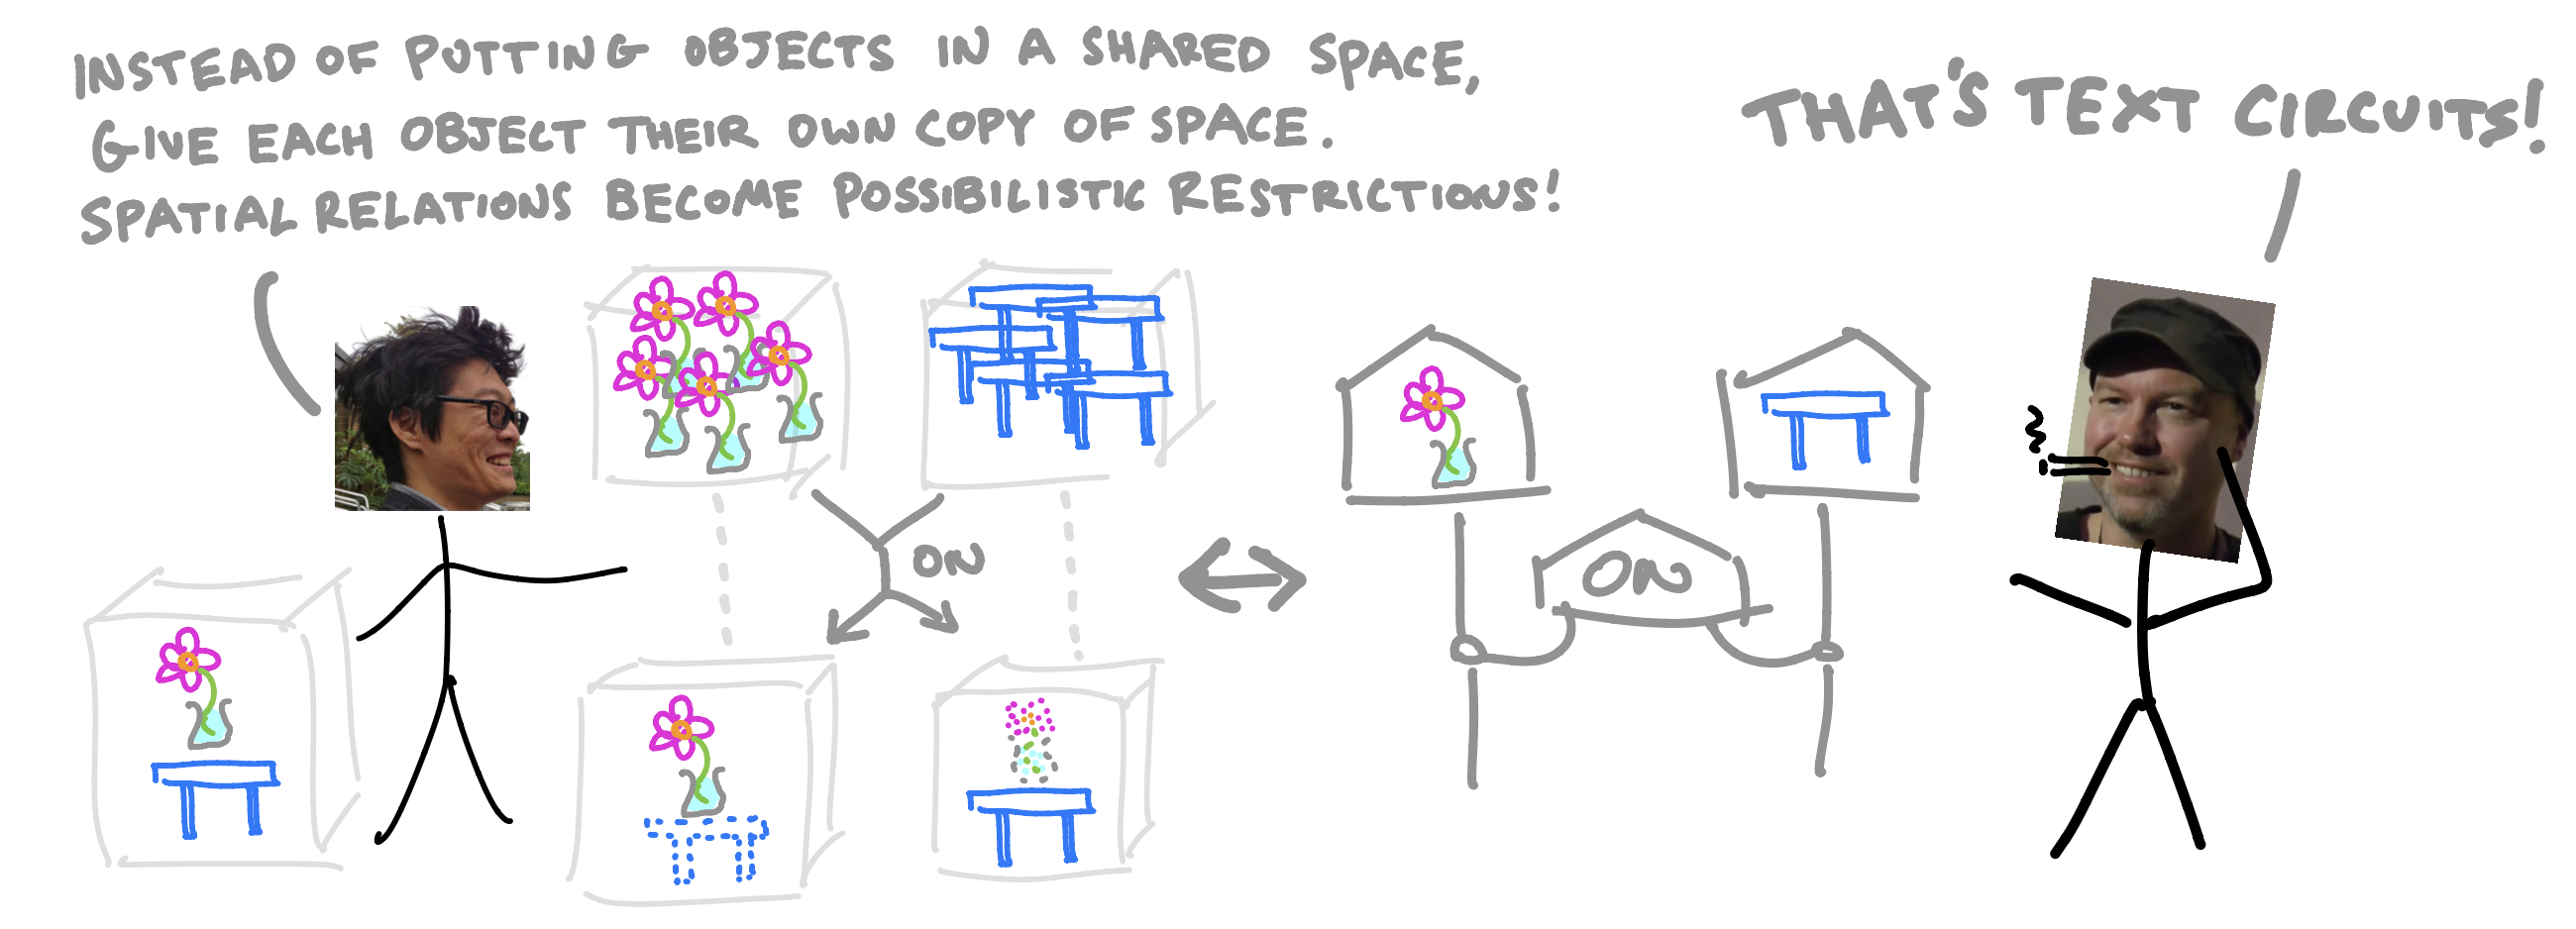 INSTEAD OF PUTTING OBJECTS IN A SHARED SPACE,
GIVE EACH OBJECT THEIR OWN COPY OF SPACE.
SPATIAL RELATIONS BECOME POSSIBILISTIC RESTRICTIONS!
THAT'S TEXT CIRCUITS!
ON
ON